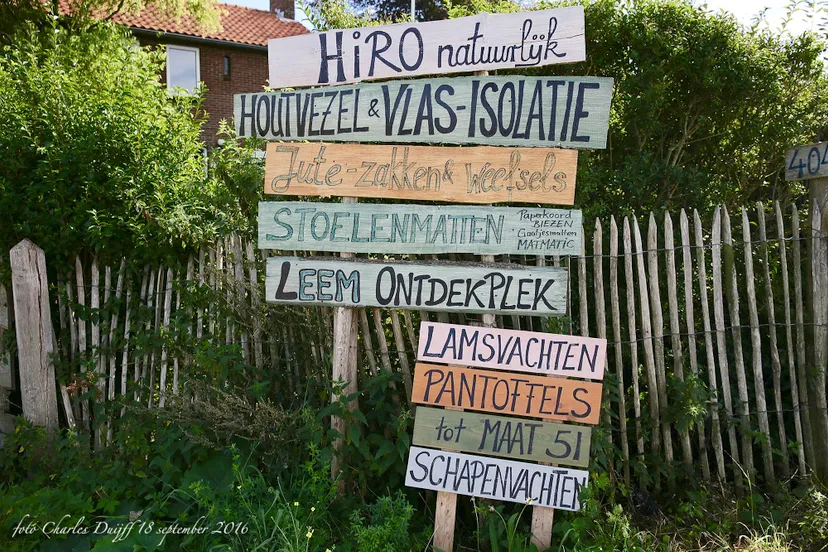 HiRO natuurlijk
HOUTVEZEL & VLAS-ISOLATIE
Jute-zakken & Weefsels
STOELENMATTEN
Paperkoord
BIEZEN
Gaatjesmatten
MATMATIC
LEEM ONTDEKPLEK
LAMSVACHTEN
PANTOFFELS
tot MAAT 51
SCHAPENVACHTEN
404
foto Charles Duijff 18 september 2016